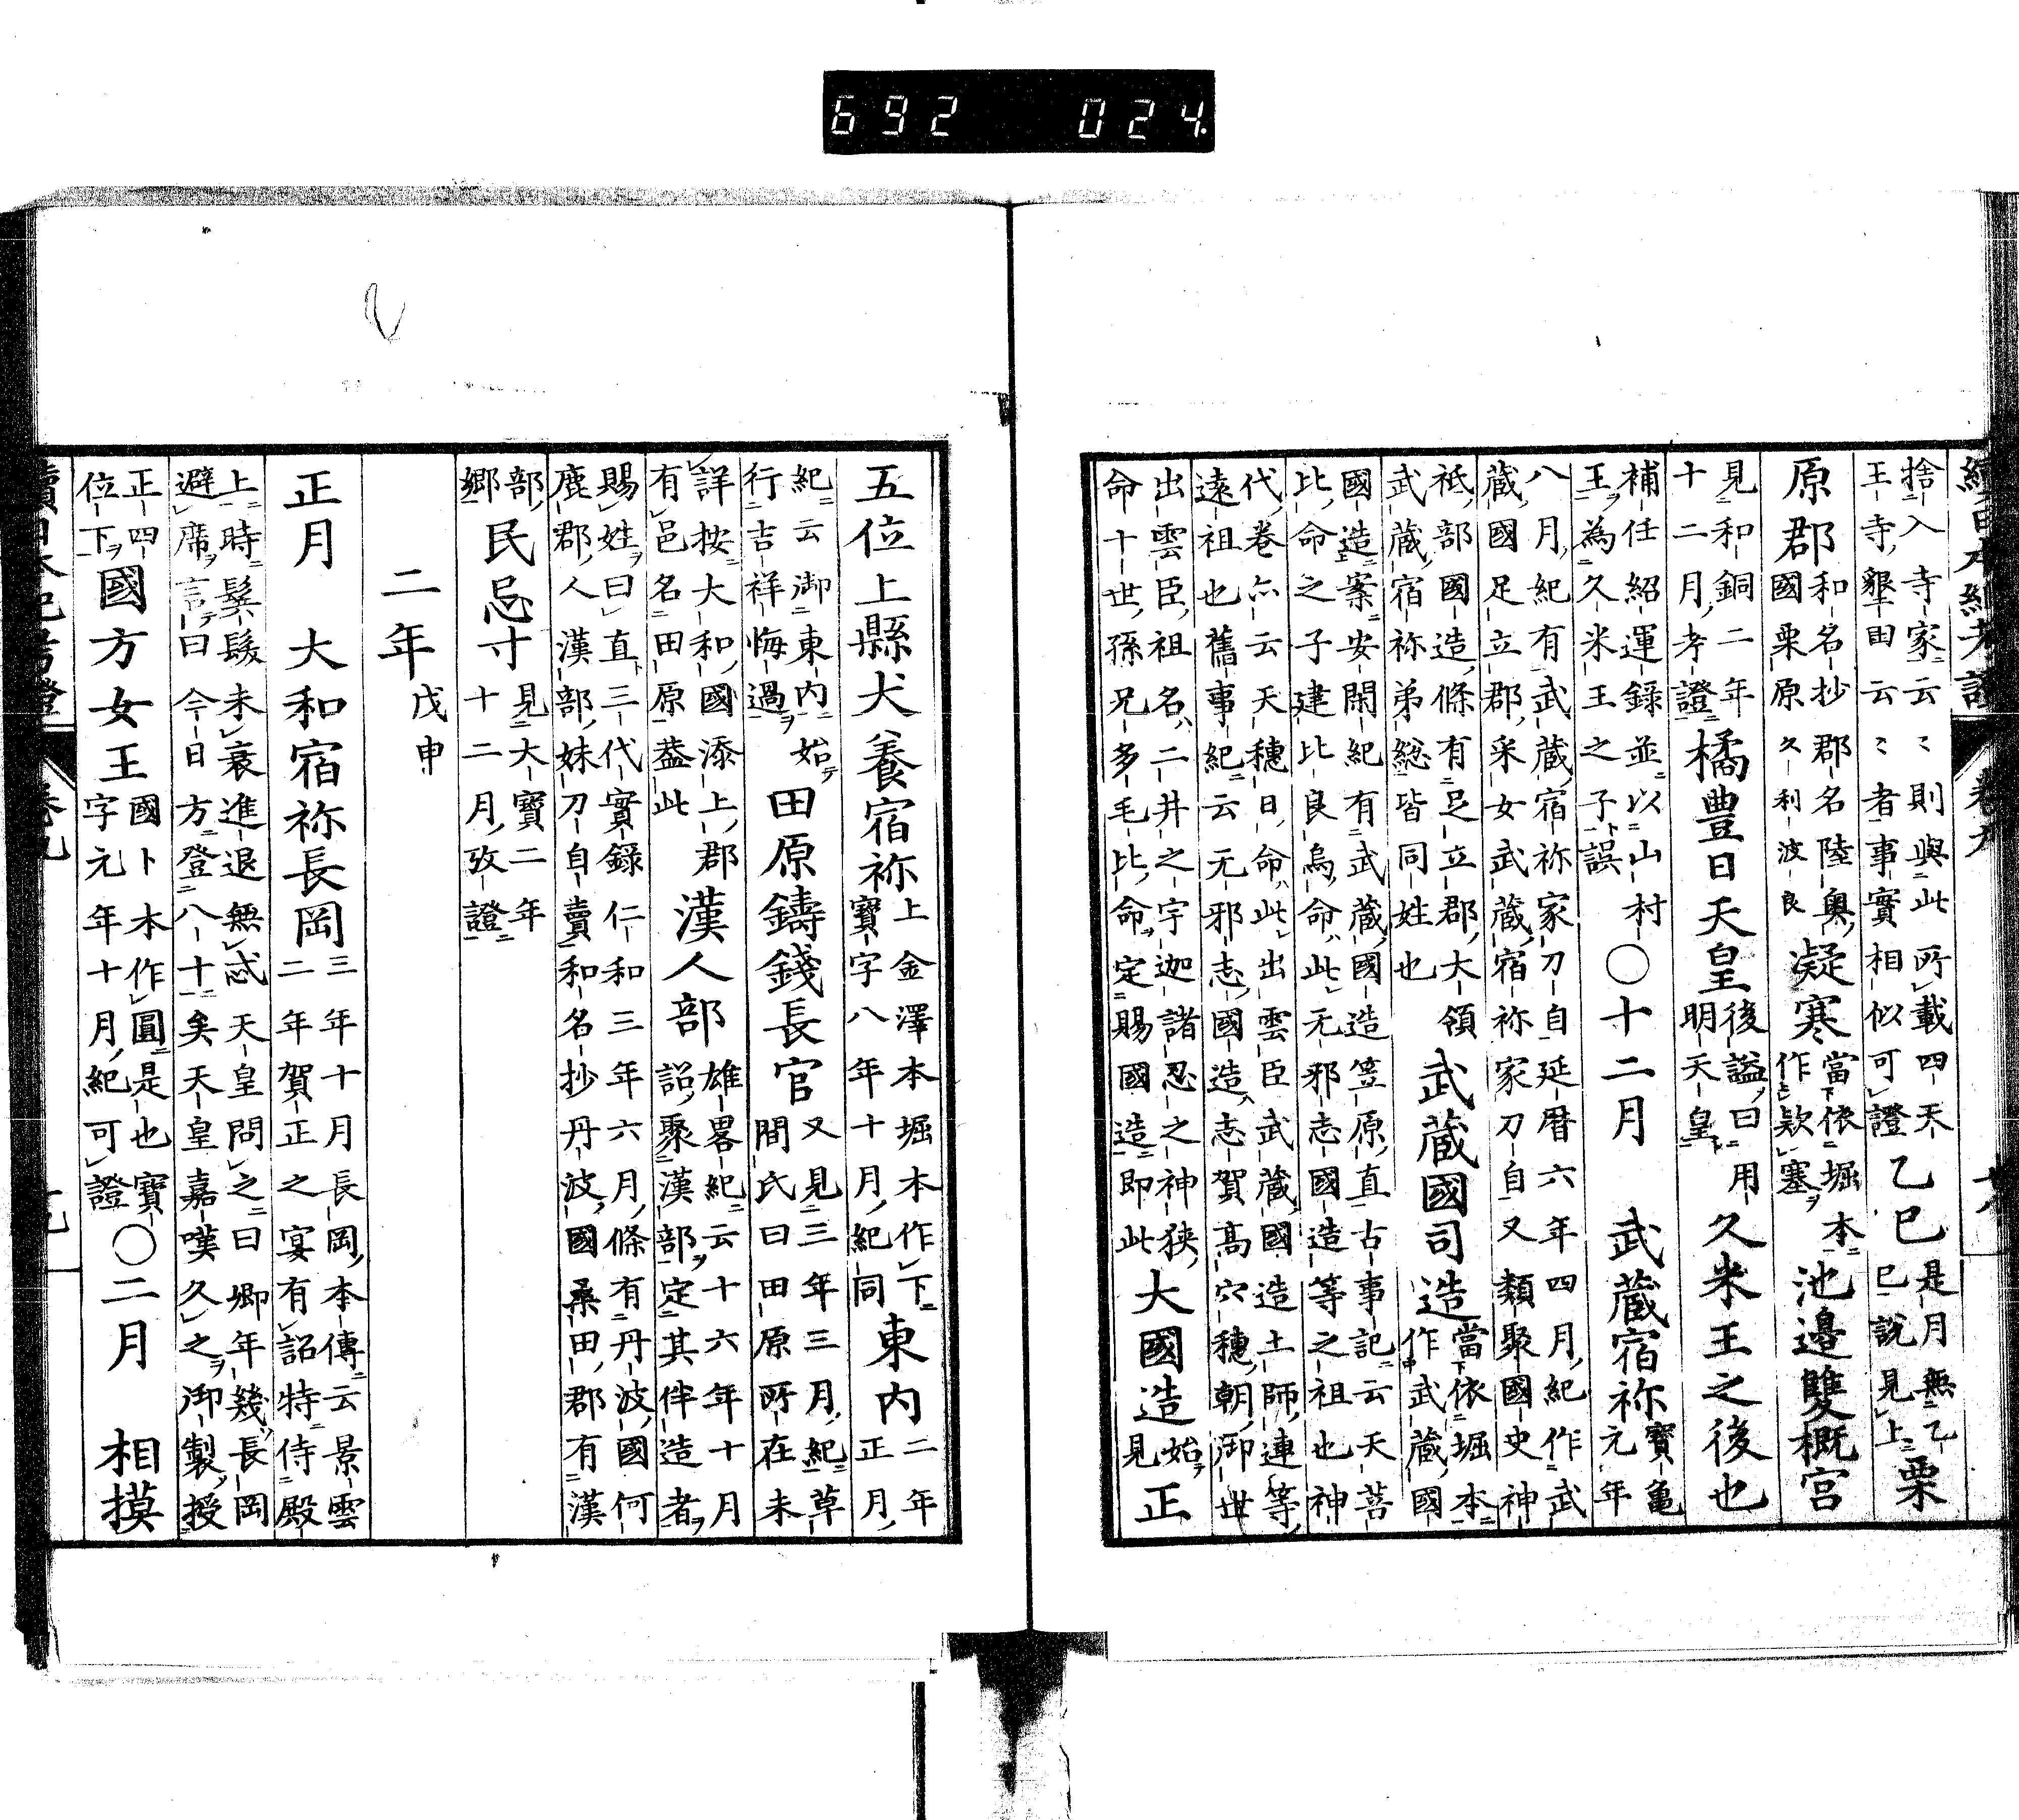 續日本紀考證 卷九 十八
捨入寺家云〻則與此所載四天王寺墾田云〻者事實相似可證乙巳是月無乙巳說見上栗
原郡和名抄郡名陸奥國栗原久利波良凝寒當依堀本作欵塞池邊雙槪宮
見和銅二年十二月考證橘豊日天皇後謚曰用明天皇久米王之後也
補任紹運録並以山村王為久米王之子誤○十二月 武蔵宿祢寶亀元年
八月紀有武蔵宿祢家刀自延暦六年四月紀作武蔵國足立郡采女武蔵宿祢家刀自又類聚國史神
祇部國造條有足立郡大領武蔵宿祢弟総皆同姓也武蔵國司造當依堀本作武蔵國
國造案安閑紀有武蔵國造笠原直古事記云天菩比命之子建比良鳥命此无邪志國造等之祖也神
代卷亦云天穗日命此出雲臣武蔵國造土師連等遠祖也舊事紀云无邪志國造志賀高穴穗朝御世
出雲臣祖名二井之宇迦諸忍之神狭命十世孫兄多毛比命定賜國造即此大國造始見正
五位上縣犬養宿祢上金澤本堀本作下寶字八年十月紀同東内二年正月
紀云御東内始行吉祥悔過田原鑄錢長官又見三年三月紀草間氏曰田原所在未
詳按大和國添上郡有邑名田原葢此漢人部雄畧紀云十六年十月詔聚漢部定其伴造者
賜姓曰直三代實録仁和三年六月條有丹波國何鹿郡人漢部妹刀自賣和名抄丹波國桑田郡有漢
部郷民忌寸見大寶二年十二月攷證
二年戊申
正月 大和宿祢長岡三年十月長岡本傳云景雲二年賀正之宴有詔特侍殿
上時鬓髮未衰進退無忒天皇問之曰卿年幾長岡避席言曰今日方登八十矣天皇嘉嘆久之御製授
正四位下國方女王國卜本作圓是也寶字元年十月紀可證○二月 相摸
續日本紀考證 卷九 十九
692 024.